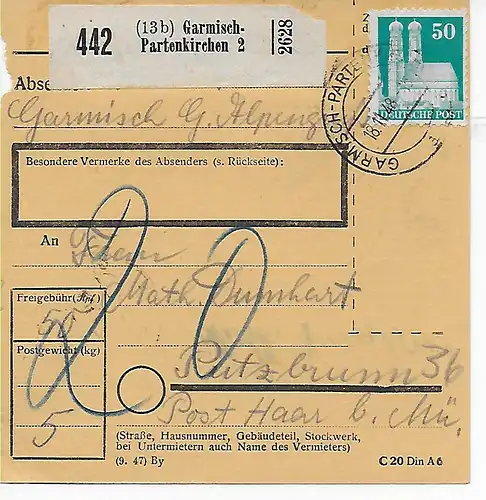 442
(13b) Garmisch-
Partenkirchen 2
2628
50
DEUTSCHE POST
GARMISCH-PARTE
Abse
Garmisch G. Alpenz
Besondere Vermerke des Absenders (s. Rückseite):
An
Math. Dumhart
Freigebühr (Rpf)
50
Postgewicht (kg)
5
20
Putzbrunn 36
Post Haar b. Mü.
(Straße, Hausnummer, Gebäudeteil, Stockwerk,
bei Untermietern auch Name des Vermieters)
(9. 47) By
C 20 Din A 6